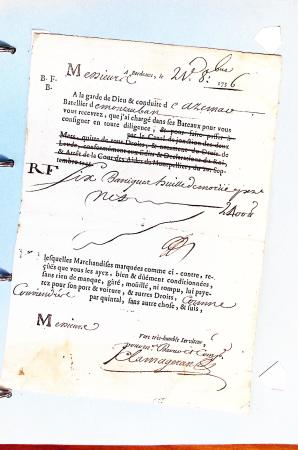 Messieurs Bordeaux, le 21 8bre 1776
B. F.
B.
A la garde de Dieu & conduite de Cazenave
Batellier de Montauban
vous recevrez, que j'ai chargé dans ses Bateaux pour vous
consigner en toute diligence, & pour faire passer
par le Canal de jonction des deux
Mers, quitte de tous Droits, & notamment de Droits de
Leude, conformément aux Edits & Déclarations du Roi,
& Arrêt de la Cour des Aides de Montpellier, du 20 Sep-
tembre
RF Six Barriques huille de morüe
lesquelles Marchandises marquées comme ci-contre, re-
çûes que vous les ayez, bien & dûëment conditionnées,
sans rien de manque, gâté, mouillé, ni rompu, lui paye-
rez pour son port & voiture, & autres Droits, Comme
Conviendrez par quintal, sans autre chose, & suis,
Messieurs
Votre très-humble Serviteur